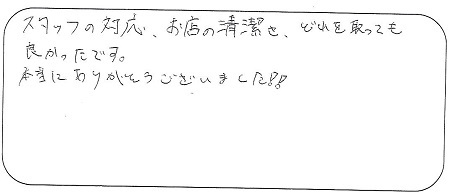 スタッフの対応、お店の清潔さ、どれを取っても
良かったです。
本当にありがとうございました!!